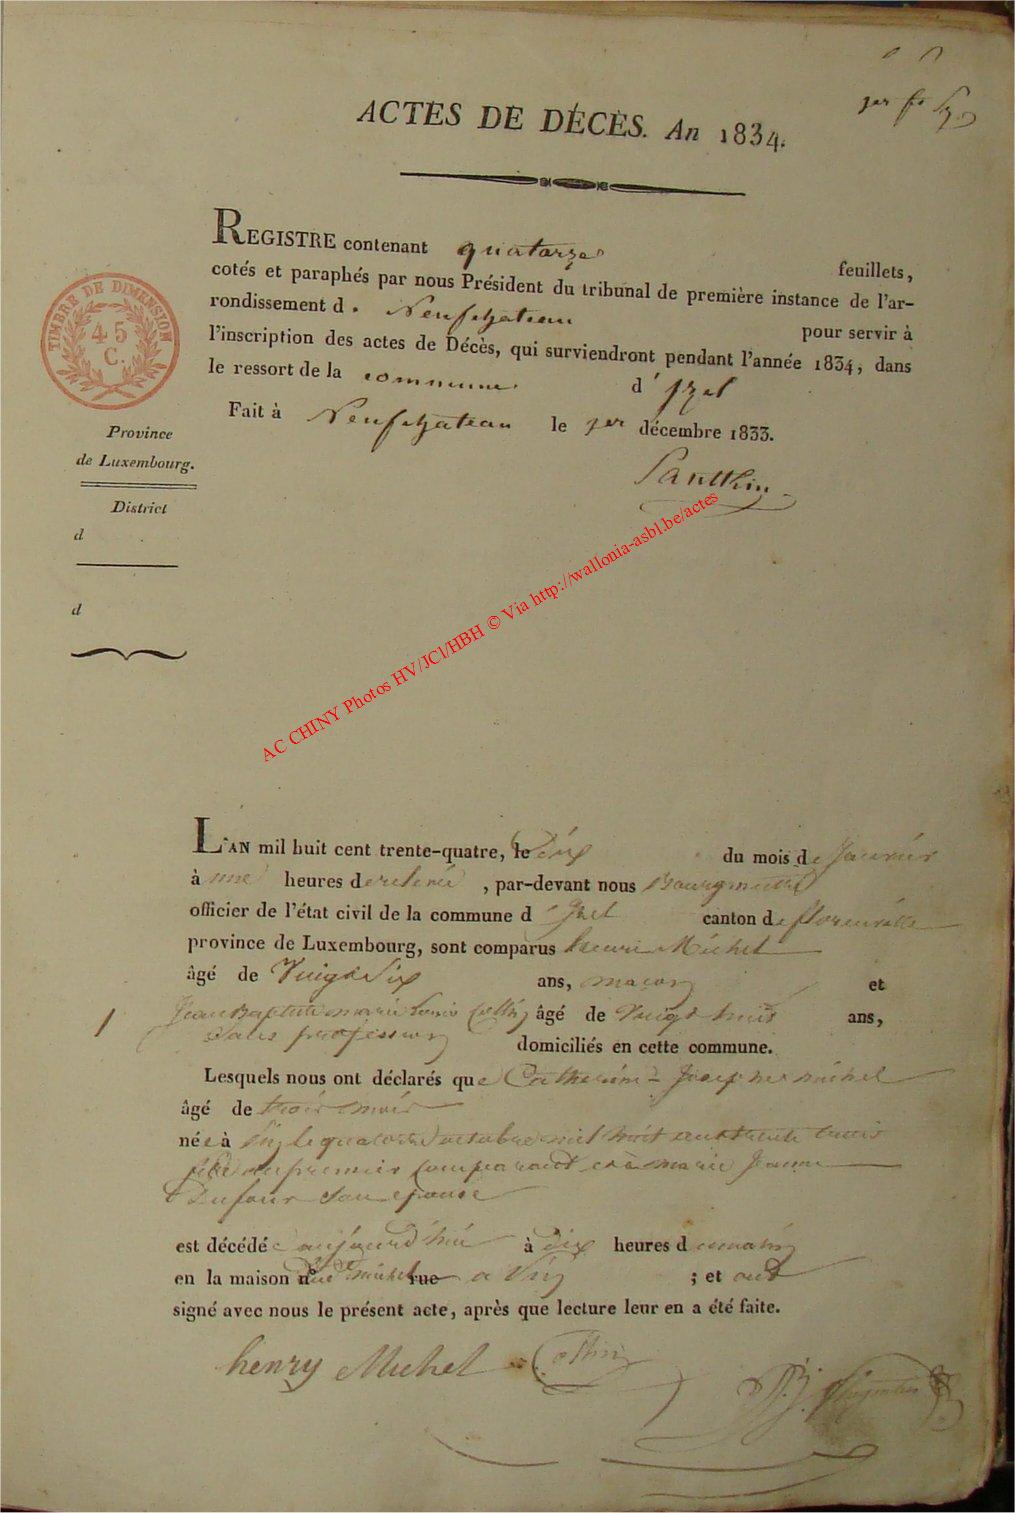 1er fo
ACTES DE DÉCÈS. An 1834.
REGISTRE contenant quatorze feuillets,
cotés et paraphés par nous Président du tribunal de première instance de l'ar-
rondissement d. Neufchateau pour servir à
l'inscription des actes de Décès, qui surviendront pendant l'année 1834, dans
le ressort de la commune d'Izel
Fait à Neufchateau le 1er décembre 1833.
TIMBRE DE DIMENSION
45
C.
Province
de Luxembourg.
District
d
d
AC CHINY Photos HV/JCl/HBH © Via http://wallonia-asbl.be/actes
L'AN mil huit cent trente-quatre, le dix du mois de Janvier
à une heures de relevée, par-devant nous Bourgmestre
officier de l'état civil de la commune d'Izel canton de florenville
province de Luxembourg, sont comparus henri Michel
âgé de Vingt Six ans, maçon et
1
Jean Baptiste marie Louis Collin âgé de Vingt huit ans,
professeur domiciliés en cette commune.
Lesquels nous ont déclarés que Catherine - Josephe michel
âgé de trois mois
née à Pin le quatorze octobre mil huit cent trente trois
fille du premier comparant et à marie Jeanne
Dufour son épouse
est décédée aujourd'hui à dix heures du matin
en la maison n° dud michel rue a Pin ; et ont
signé avec nous le présent acte, après que lecture leur en a été faite.
henry Michel Collin